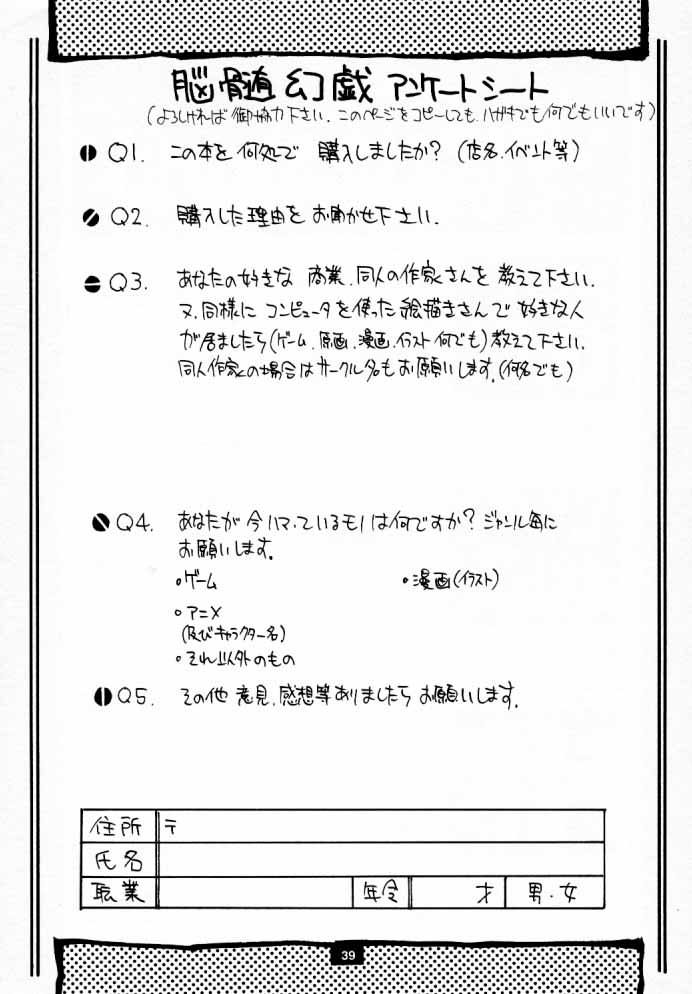 脳髄幻戯 アンケートシート
(よろしければ御協力下さい. このページをコピーしても. ハガキでも何でもいいです)
Q1. この本を何処で 購入しましたか? (店名.イベント等)
Q2. 購入した理由をお聞かせ下さい.
Q3. あなたの好きな 商業.同人の作家さんを 教えて下さい.
又.同様に コンピュータを使った絵描きさんで 好きな人
が居ましたら(ゲーム.原画.漫画.イラスト何でも)教えて下さい.
同人作家の場合はサークル名もお願いします.(何名でも)
Q4. あなたが今ハマっているモノは何ですか? ジャンル毎に
お願いします.
・ゲーム ・漫画(イラスト)
・アニメ
(及びキャラクター名)
・それ以外のもの
Q5. その他 意見.感想等ありましたら お願いします.
住所 〒
氏名
職業 年令 才 男.女
39